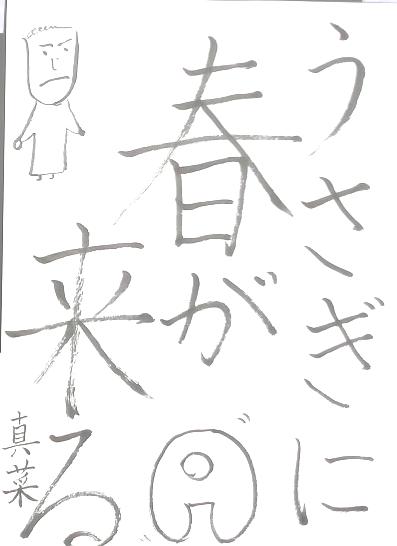 うさぎに
春が
来る
真菜